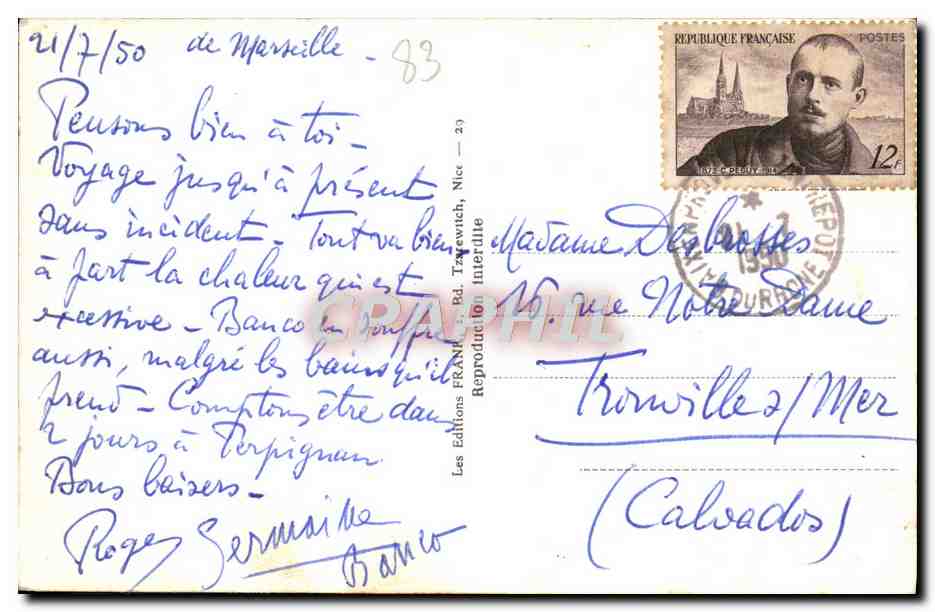 21/7/50 de Marseille -
83
Pensons bien à toi -
Voyage jusqu'à présent
sans incident - Tout va bien
à part la chaleur qui est
excessive - Banco en souffre
aussi, malgré les bains qu'il
prend - Comptons être dans
2 jours à Perpignan
Bons baisers -
Roger Germaine
Banco
Les Editions FRANK Bd. Tzarewitch, Nice — 29
Reproduction interdite
REPUBLIQUE FRANÇAISE POSTES
C. PEGUY
12F
21 7
1950
DU RHONE
Madame Desbrosses
16. rue Notre Dame
Trouville s/Mer
(Calvados)
CPAPHIL